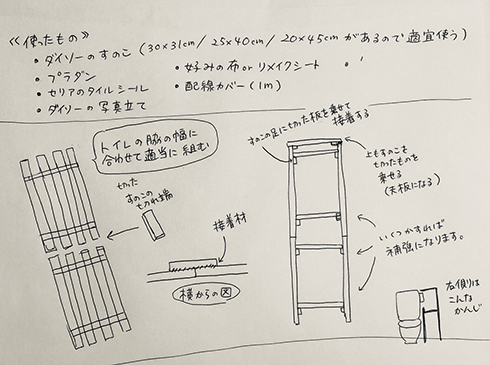 ≪使ったもの≫
・ダイソーのすのこ（30×31cm/25×40cm/20×45cmがあるので適宜使う）
・プラダン
・セリアのタイルシール
・ダイソーの写真立て
・好みの布orリメイクシート
・配線カバー（1m）
トイレの脇の幅に
合わせて適当に組む
切った
すのこの
切れ端
接着材
横からの図
すのこの足に切った板を乗せて
接着する
上もすのこを
切ったものを
乗せる
（天板になる）
いくつかすれば
補強になります。
右側は
こんな
かんじ